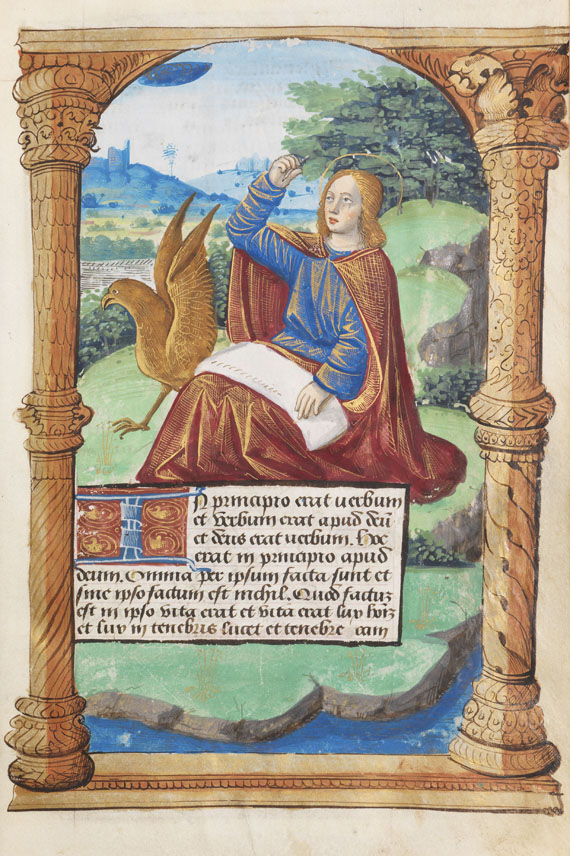 IN principio erat uerbum
et verbum erat apud deū
et deus erat uerbum. Hoc
erat in principio apud
deum. Omnia per ipsum facta sunt et
sine ipso factum est nichil. Quod factuꝫ
est in ipso vita erat et vita erat lux hoīꝫ
et lux in tenebris lucet et tenebre eam